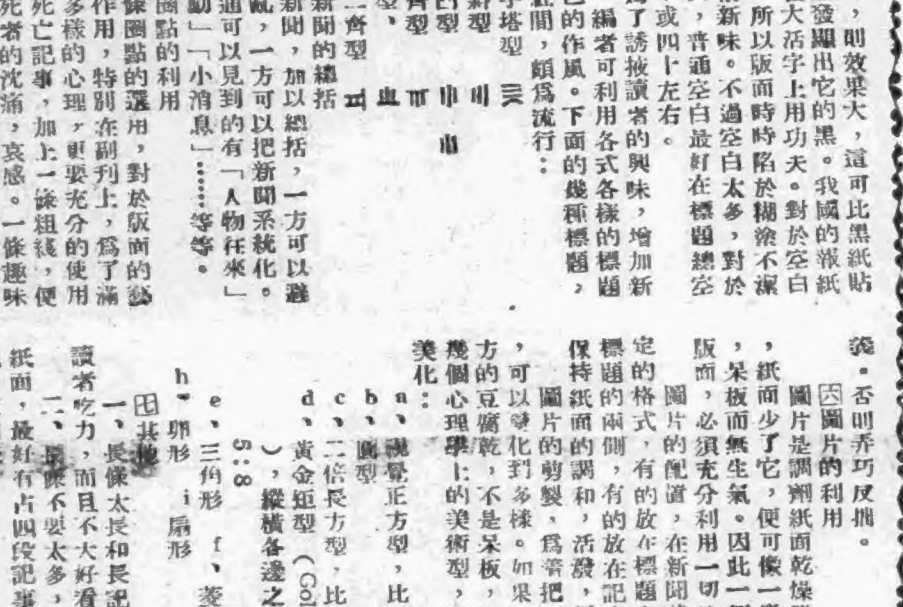 ，則效果大，這可比黑紙貼
發顯出它的黑。我國的報紙
在大活字上用功夫。對於空白
所以版面時時陷於糊塗不潔
新味。不過空白太多，對於
，普通空白最好在標題總空
或四十左右。
爲了誘掖讀者的興味，增加新
編者可利用各式各樣的標題
色的作風。下面的幾種標題，
間，頗爲流行：
塔型
型
型
型
齊型
新聞的總括
新聞，加以總括，一方可以避
亂，一方可以把新聞系統化。
通可以見到的有「人物往來」
動」「小消息」……等等。
圈點的利用
條圈點的選用，對於版面的藝
作用，特別在副刋上，爲了滿
多樣的心理，更要充分的使用
死亡記事，加上一條粗綫，便
死者的沈痛，哀感。一條趣味
義。否則弄巧反拙。
六圖片的利用
圖片是調劑紙面乾燥
，紙面少了它，便可像一
，呆板而無生氣。因此一個
版面，必須充分利用一切
圖片的配置，在新聞
定的格式，有的放在標題
標題的兩側，有的放在記
保持紙面的調和，活潑，
圖片的剪製，爲着把
，可以變化到多樣。如果
方的豆腐乾，不是呆板，
幾個心理學上的美術型，
美化：
a、視覺正方型，比
b、圓型
c、二倍長方型，比
d、黃金矩型（Gol
），縱橫各邊之
5:8
e、三角形　f、菱
h、卵形　i 扇形
七其他
一、長條太長和長記
讀者吃力，而且不大好看
二、長條不要太多，
紙面，最好有占四段記事